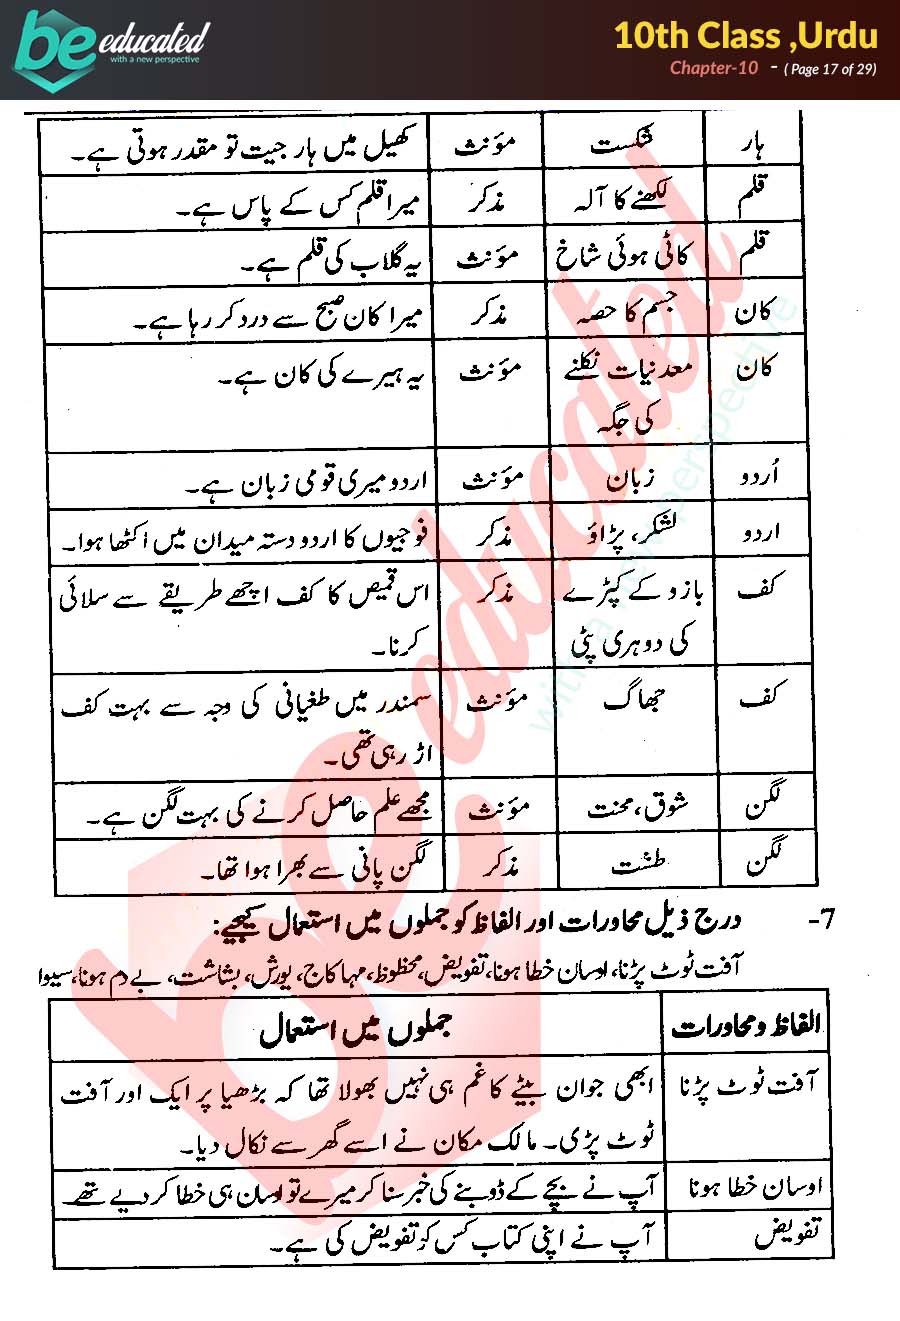 be educated
with a new perspective
10th Class ,Urdu
Chapter-10 - ( Page 17 of 29)
ہار شکست مؤنث کھیل میں ہار جیت تو مقدر ہوتی ہے۔
قلم لکھنے کا آلہ مذکر میرا قلم کس کے پاس ہے۔
قلم کاٹی ہوئی شاخ مؤنث یہ گلاب کی قلم ہے۔
کان جسم کا حصہ مذکر میرا کان صبح سے درد کر رہا ہے۔
کان معدنیات نکلنے مؤنث یہ ہیرے کی کان ہے۔
کی جگہ
اُردو زبان مؤنث اردو میری قومی زبان ہے۔
اردو لشکر، پڑاؤ مذکر فوجیوں کا اردو دستہ میدان میں اکٹھا ہوا۔
کف بازو کے کپڑے مذکر اس قمیص کا کف اچھے طریقے سے سلائی
کی دوہری پٹی کرنا۔
کف جھاگ مؤنث سمندر میں طغیانی کی وجہ سے بہت کف
اڑ رہی تھی۔
لگن شوق، محنت مؤنث مجھے علم حاصل کرنے کی بہت لگن ہے۔
لگن طشت مذکر لگن پانی سے بھرا ہوا تھا۔
7- درج ذیل محاورات اور الفاظ کو جملوں میں استعمال کیجیے:
آفت ٹوٹ پڑنا، اوسان خطا ہونا، تفویض، محظوظ، مہا کاج، یورش، بشاشت، بے دم ہونا، سیوا
الفاظ و محاورات جملوں میں استعمال
آفت ٹوٹ پڑنا ابھی جوان بیٹے کا غم ہی نہیں بھولا تھا کہ بڑھیا پر ایک اور آفت
ٹوٹ پڑی۔ مالک مکان نے اسے گھر سے نکال دیا۔
اوسان خطا ہونا آپ نے بچے کے ڈوبنے کی خبر سنا کر میرے تو اوسان ہی خطا کر دیے تھے
تفویض آپ نے اپنی کتاب کس کو تفویض کی ہے۔
be educated
with a new perspective